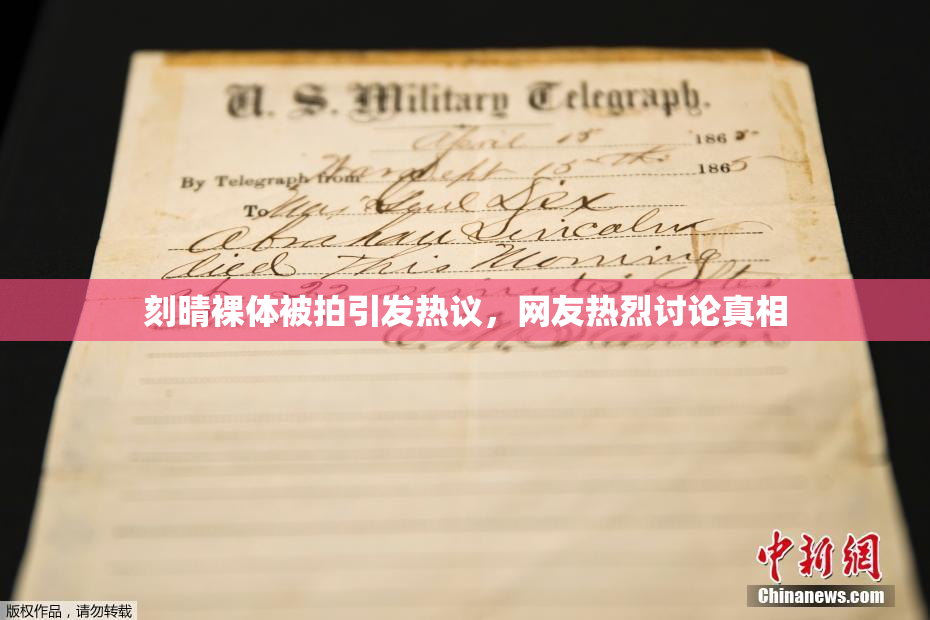 U. S. Military Telegraph.
April 15 1865
By Telegraph from War Dept 15th 1865
To Maj Genl Dix
Abraham Lincoln
died This Morning
at 22 minutes after
刻晴裸体被拍引发热议，网友热烈讨论真相
E. M. Stanton
中新网
Chinanews.com
版权作品，请勿转载